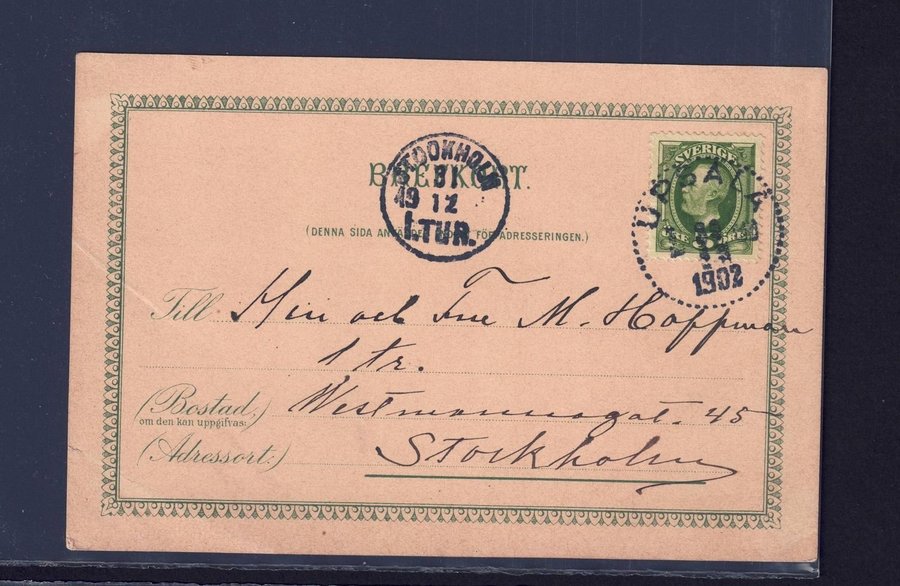 BREFKORT.
STOCKHOLM
31
19 12
1.TUR.
SVERIGE
UPSALA
1902
(DENNA SIDA ANVÄNDES ENDAST FÖR ADRESSERINGEN.)
Till Herr och Fru M. Hoffman
1 tr.
(Bostad,) Westmannagat. 45
om den kan uppgifvas:
(Adressort:) Stockholm